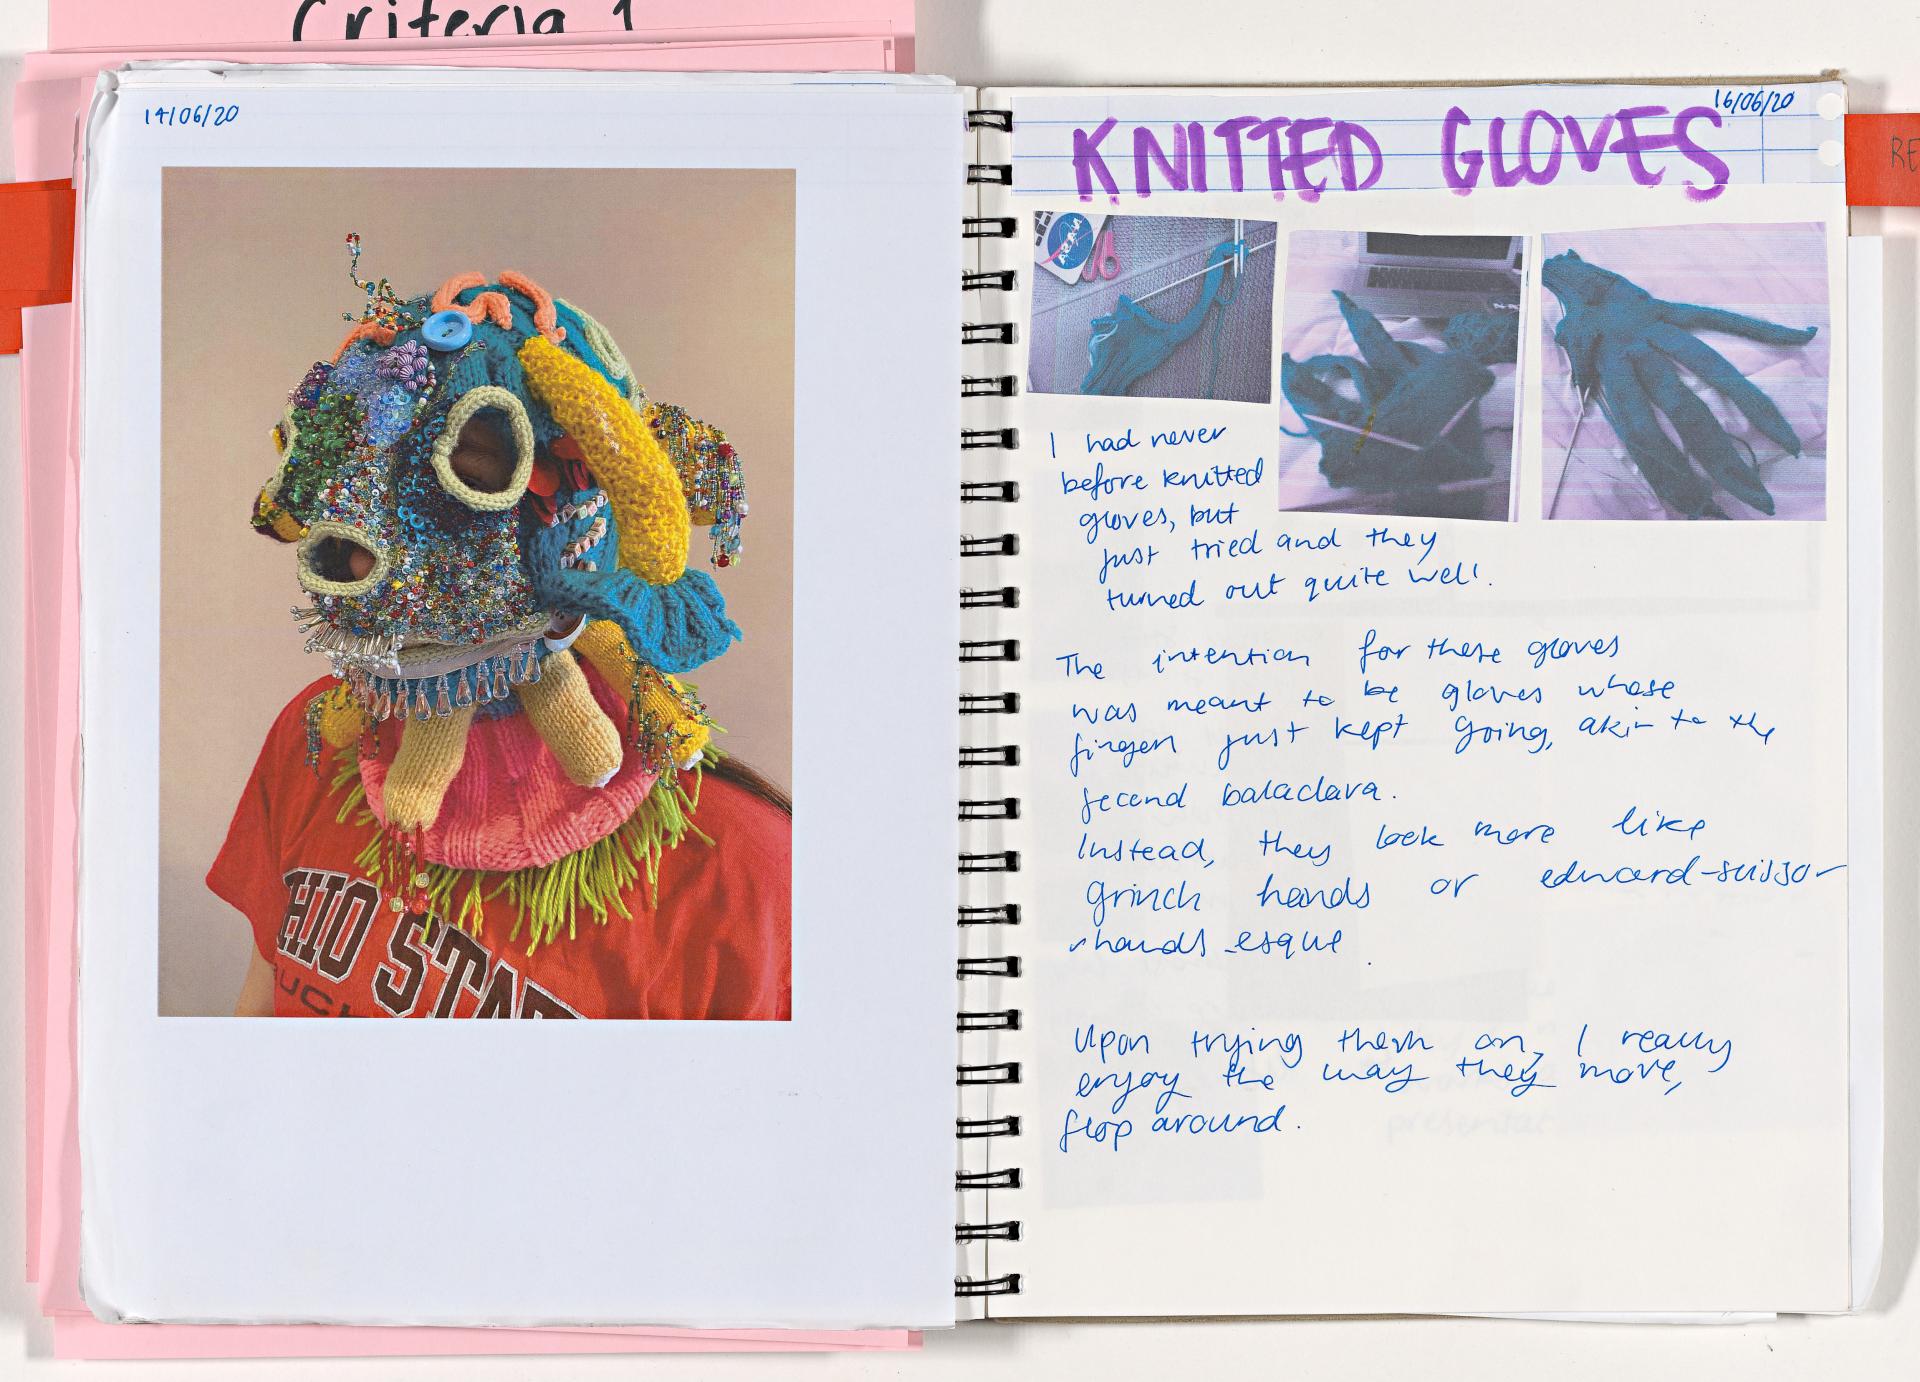 Criteria 1
14/06/20
OHIO STATE
BUCK
16/06/20
KNITTED GLOVES
RE
NASA
I had never
before knitted
gloves, but
just tried and they
turned out quite well.
The intention for these gloves
was meant to be gloves whose
fingers just kept going, akin to the
second balaclava.
Instead, they look more like
grinch hands or edward-scissor
-hands-esque.
Upon trying them on, I really
enjoy the way they move,
flop around.